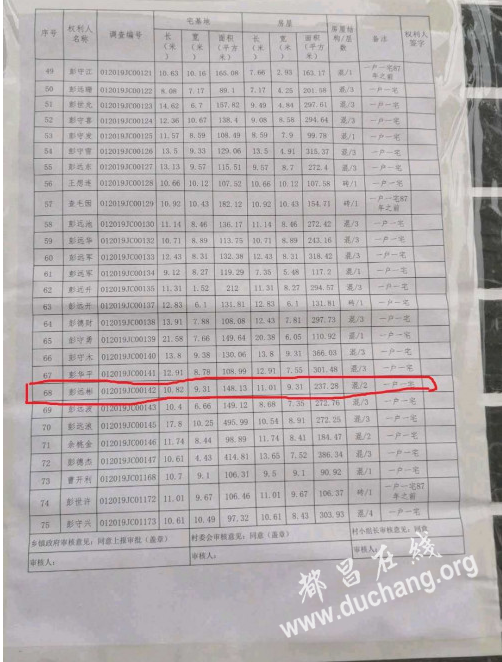 序号 权利人名称 调查编号 宅基地 房屋 房屋结构/层数 备注 权利人签字
长(米) 宽(米) 面积(平方米) 长(米) 宽(米) 面积(平方米)
49 彭守江 012019JC00121 10.63 10.16 166.08 7.66 2.93 163.17 混/1 一户一宅87年之前
50 彭远珊 012019JC00122 8.08 7.17 89.1 7.17 4.25 201.59 混/3 一户一宅
51 彭世光 012019JC00123 14.62 6.7 157.82 9.49 4.84 297.61 混/3 一户一宅
52 彭守喜 012019JC00124 12.36 10.67 138.4 9.08 8.58 294.64 混/3 一户一宅
53 彭守来 012019JC00125 11.57 8.59 108.49 8.59 7.9 99.78 混/1 一户一宅
54 彭守雪 012019JC00126 13.5 9.33 129.06 13.5 4.91 315.37 混/3 一户一宅
55 彭远东 012019JC00127 13.13 9.57 115.51 9.57 8.7 272.4 混/3 一户一宅
56 王想连 012019JC00128 10.66 10.12 107.52 10.66 10.12 107.58 砖/1 一户一宅
57 查毛国 012019JC00129 10.92 10.43 182.12 10.92 10.43 154.71 砖/1 一户一宅87年之前
58 彭远池 012019JC00130 11.14 8.46 136.17 11.14 8.46 272.42 混/3 一户一宅
59 彭远华 012019JC00132 10.71 8.89 113.75 10.71 8.89 243.16 混/3 一户一宅
60 彭远军 012019JC00133 12.43 8.31 132.38 12.43 8.31 318.42 混/3 一户一宅
61 彭远军 012019JC00134 9.12 8.27 119.29 7.35 5.48 117.2 混/1 一户一宅
62 彭远升 012019JC00135 11.31 1.52 212 11.31 8.27 294.57 混/3 一户一宅
63 彭远开 012019JC00137 12.83 6.1 131.81 12.83 6.1 131.81 砖/1 一户一宅
64 彭德财 012019JC00138 13.91 7.88 108.08 12.43 7.81 297.73 混/3 一户一宅
65 彭守勇 012019JC00139 21.58 7.66 149.64 20.38 6.05 110.92 混/1 一户一宅
66 彭守木 012019JC00140 13.8 9.38 130.06 13.8 9.38 386.03 混/3 一户一宅
67 彭华平 012019JC00141 12.91 8.78 108.99 12.91 7.55 301.46 混/3 一户一宅
68 彭远彬 012019JC00142 10.82 9.31 148.13 11.01 9.31 237.28 混/2 一户一宅
69 彭远波 012019JC00143 10.4 6.66 149.12 8.68 7.35 272.76 混/3 一户一宅
70 彭远浪 012019JC00145 17.8 10.25 495.99 10.54 8.91 272.25 混/3 一户一宅
71 余桃金 012019JC00146 11.74 8.44 98.89 11.74 8.41 184.47 混/2 一户一宅
72 彭德杰 012019JC00147 10.61 4.43 414.81 13.65 7.52 386.34 混/3 一户一宅
73 曹开利 012019JC01168 10.7 9.1 106.31 9.5 9.1 90.92 混/1 一户一宅
74 彭世许 012019JC01172 11.01 9.67 106.46 11.01 9.67 106.37 砖/1 一户一宅87年之前
75 彭守兴 012019JC01173 10.61 10.49 97.32 10.61 8.43 303.93 混/4 一户一宅
乡镇政府审核意见：同意上报审批（盖章） 村委会审核意见：同意（盖章） 村小组长审核意见：同意
审核人： 审核人： 审核人：
都昌在线
www.duchang.org